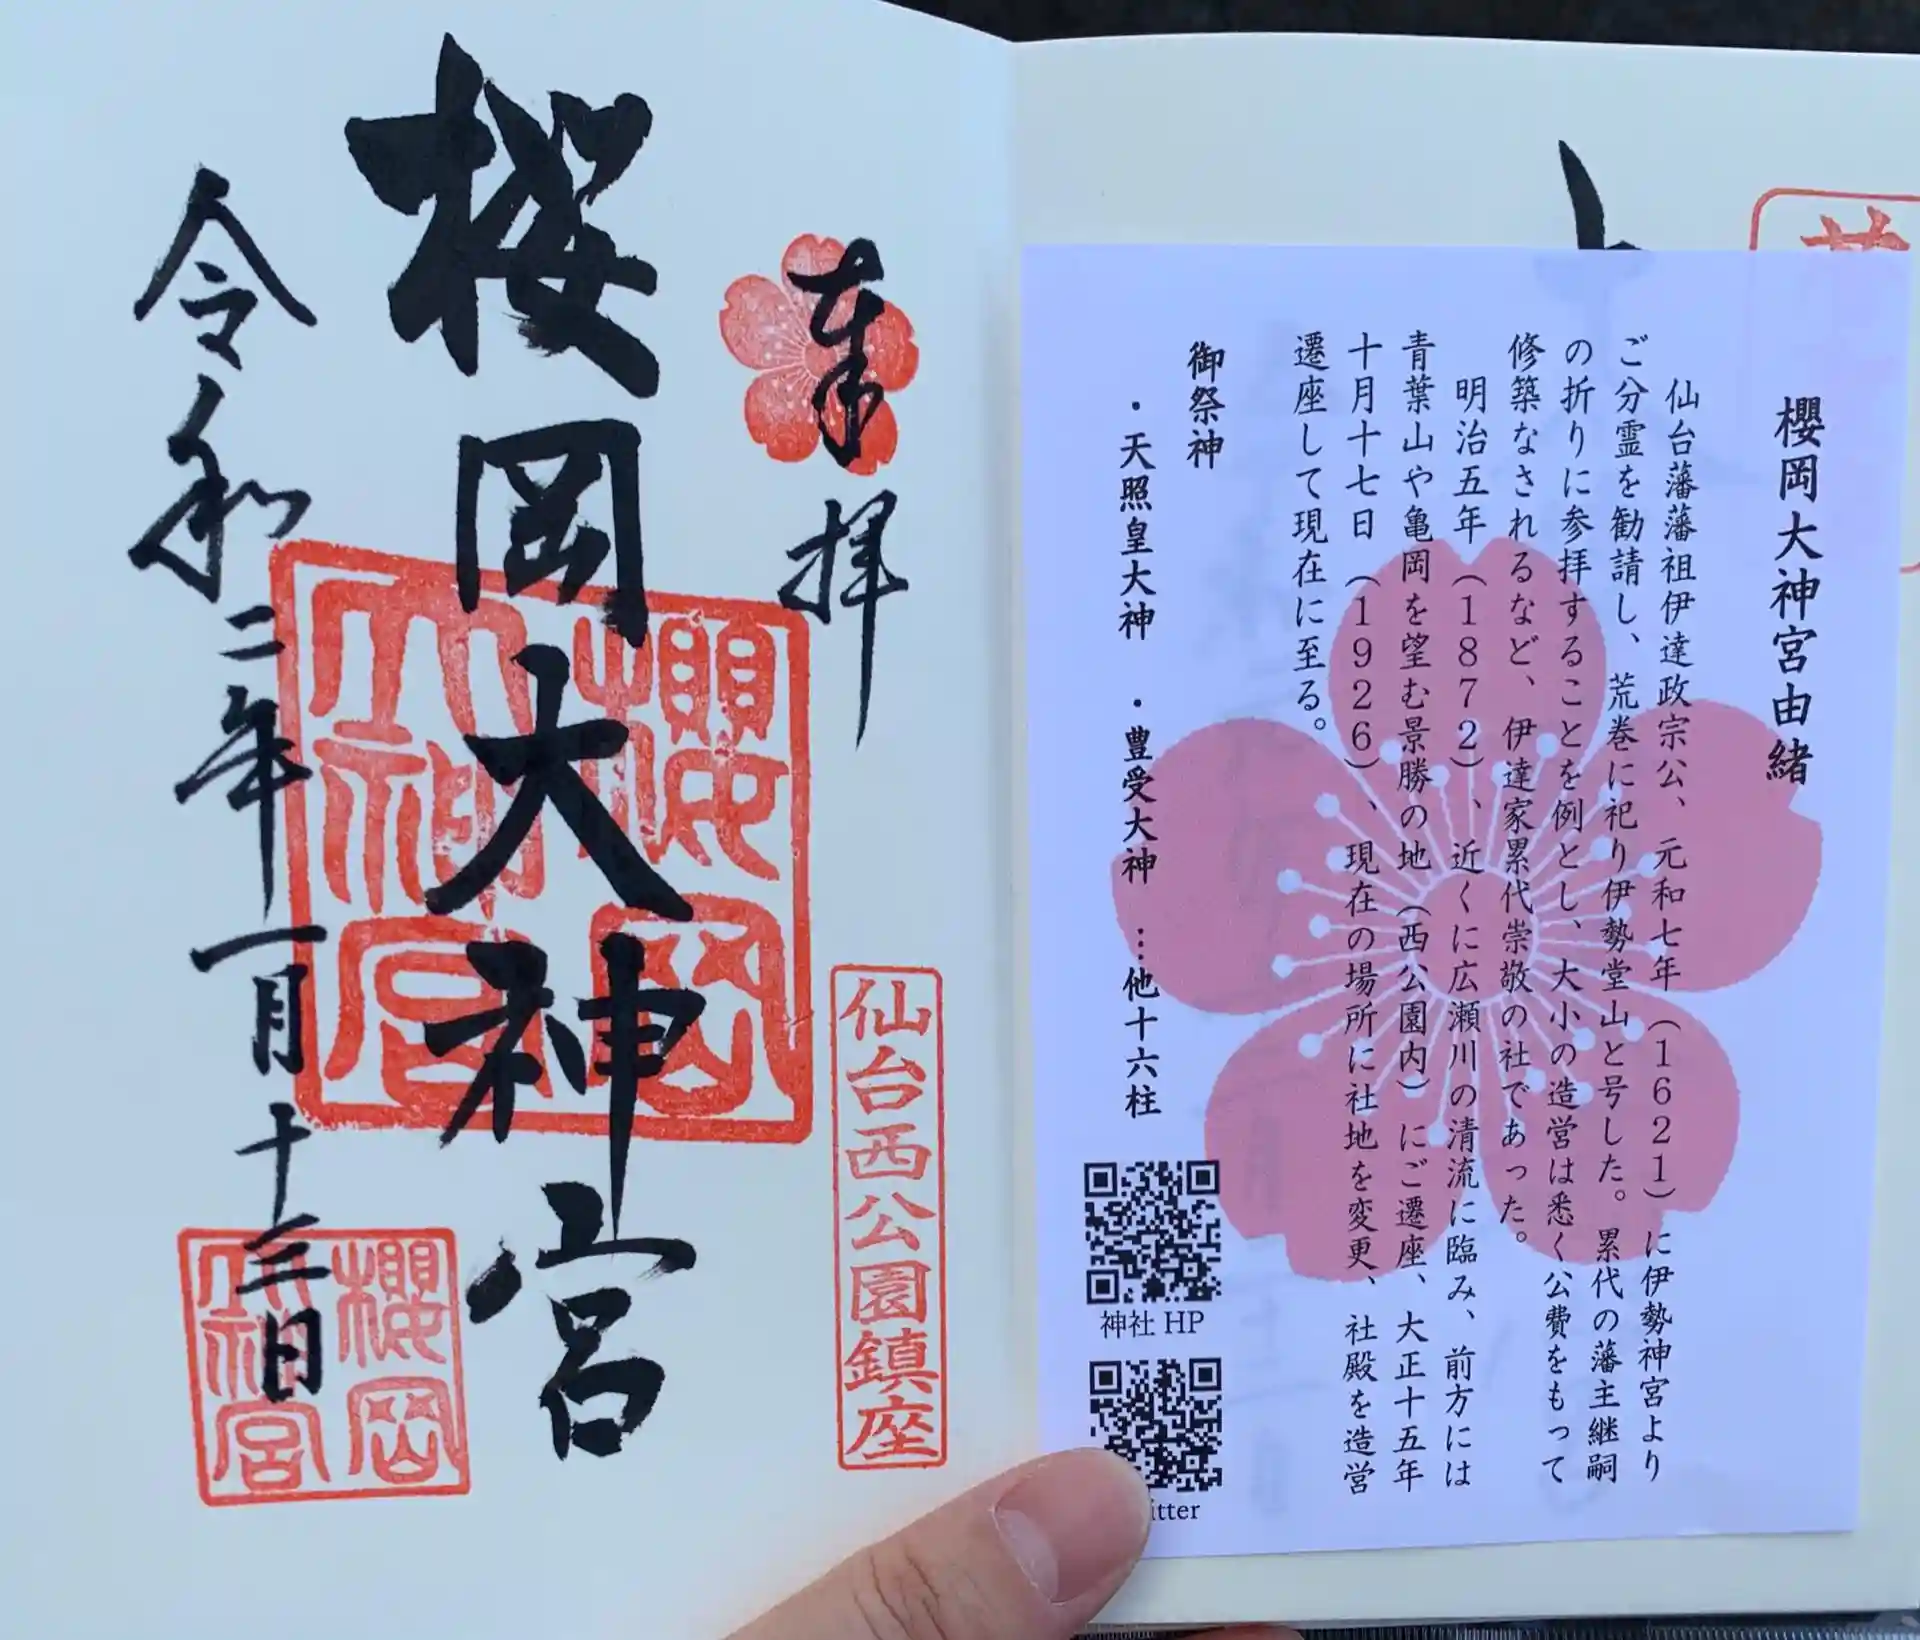 奉拝
櫻岡大神宮
令和二年一月十三日
櫻岡大神宮
仙台西公園鎮座
櫻岡大神宮
櫻岡大神宮由緒
仙台藩藩祖伊達政宗公、元和七年（1621）に伊勢神宮より
ご分霊を勧請し、荒巻に祀り伊勢堂山と号した。累代の藩主継嗣
の折りに参拝することを例とし、大小の造営は悉く公費をもって
修築なされるなど、伊達家累代崇敬の社であった。
明治五年（1872）、近くに広瀬川の清流に臨み、前方には
青葉山や亀岡を望む景勝の地（西公園内）にご遷座、大正十五年
十月十七日（1926）、現在の場所に社地を変更、社殿を造営
遷座して現在に至る。
御祭神
・天照皇大神 ・豊受大神 …他十六柱
神社HP
itter